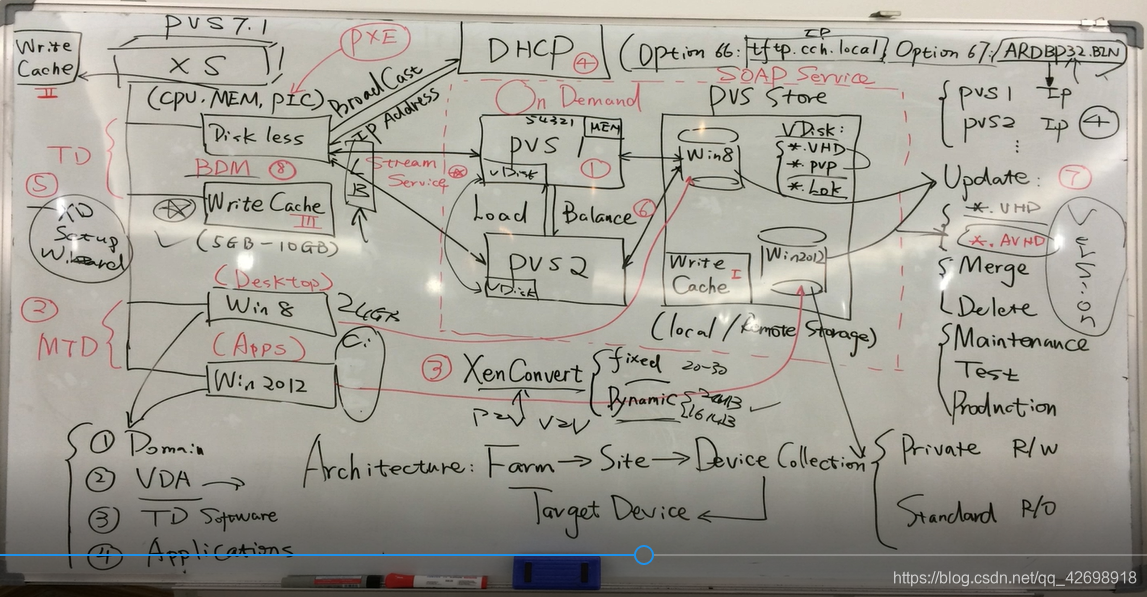 PVS 7.1
XS
Write
Cache
II
PXE
DHCP ④
(Option 66: tftp.cch.local, Option 67: ARDBP32.BIN)
IP
(CPU.MEM, PIC)
BroadCast
IP Address
On Demand
SOAP Service
PVS Store
PVS1 IP
PVS2 IP
④
⋮
TD
Disk less
BDM ⑧
Write Cache
III
(5GB-10GB)
LB
Stream
Service
54321
MEM
PVS
①
vDisk
Load Balance ⑥
PVS2
vDisk
Win8
VDisk:
*.VHD
*.pvp
*.Lok
Win2012
Write
Cache I
(local/Remote Storage)
Update: ⑦
*.VHD
*.AVHD
Merge
Delete
Maintenance
Test
Production
Version
⑤
XD
Setup
Wizard
② MTD
(Desktop)
Win 8
24GB
(Apps)
Win 2012
C:
③ XenConvert
P2V V2V
fixed 20-30
Dynamic
2MB
16MB
① Domain
② VDA
③ TD Software
④ Applications
Architecture: Farm → Site → Device Collection
Target Device
Private R/W
Standard R/O
https://blog.csdn.net/qq_42698918